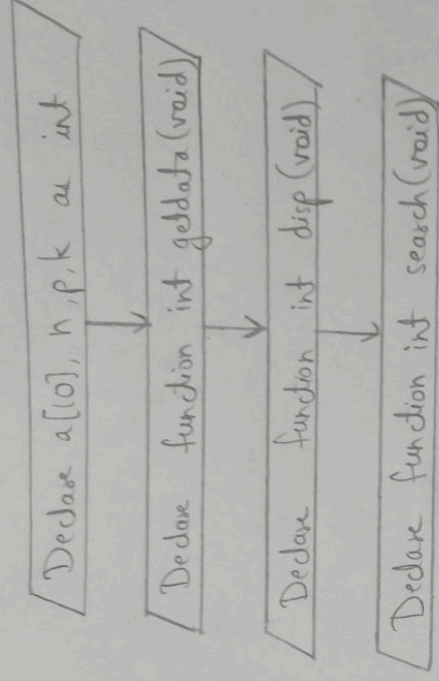 Declare a[10], n, p, k as int
Declare function int getdata(void)
Declare function int disp(void)
Declare function int search(void)